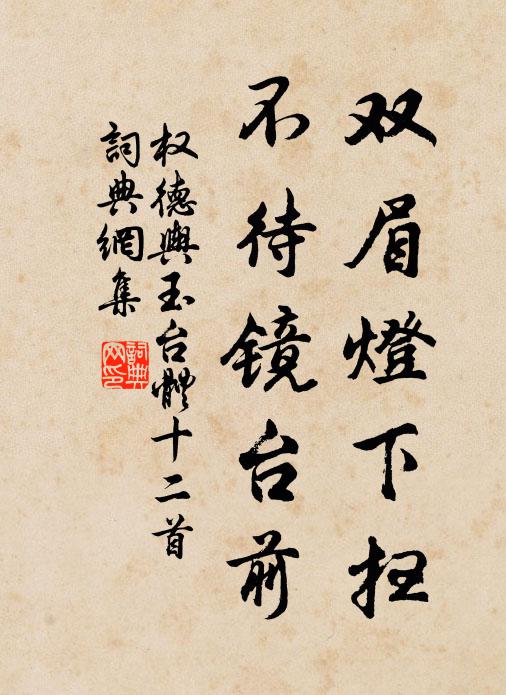 双眉燈下扫
不待镜台前
权德輿玉台體十二首
詞典網集
詞典网印